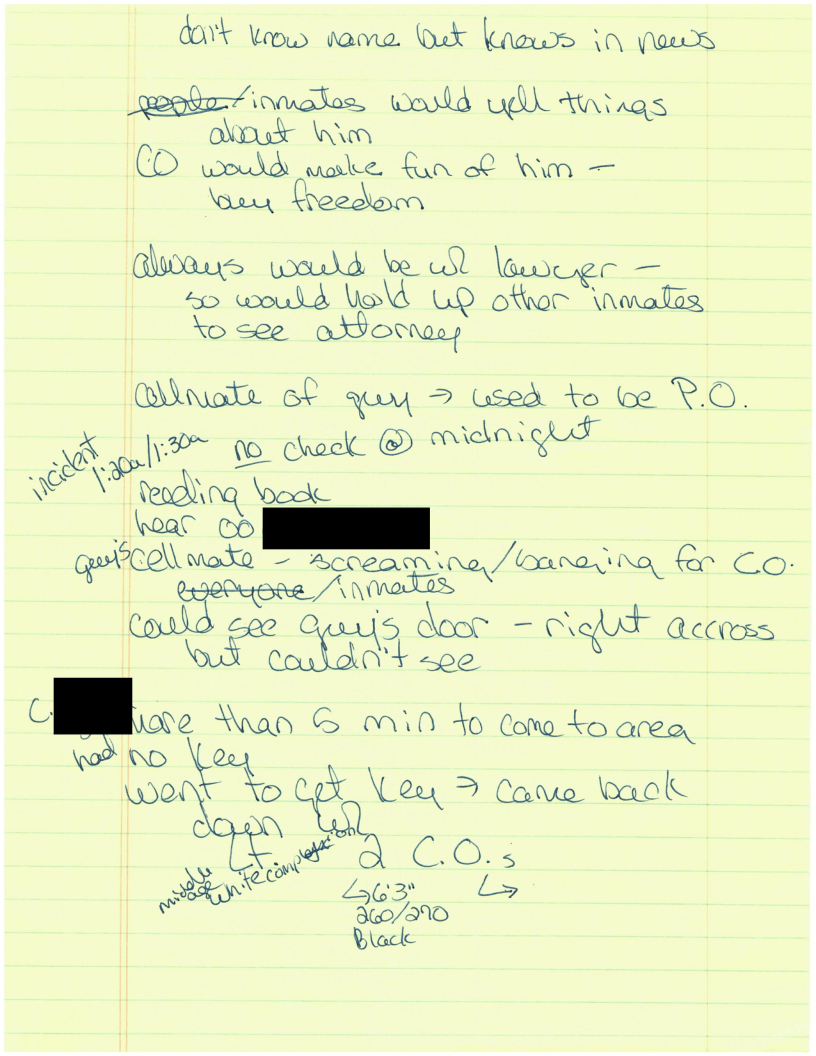 don't know name but knows in news
people/inmates would yell things
about him
CO would make fun of him –
buy freedom
always would be w/ lawyer –
so would hold up other inmates
to see attorney
cellmate of guy → used to be P.O.
incident
1:20a/1:30a
no check @ midnight
reading book
hear
guy's cellmate – screaming/banging for CO.
everyone/inmates
could see guy's door – right accross
but couldn't see
C.
more than 5 min to come to area
had no key
went to get key → came back
down w/
Lt
middle
age
white complexion
2 C.O.s
↳6'3" ↳
260/270
Black